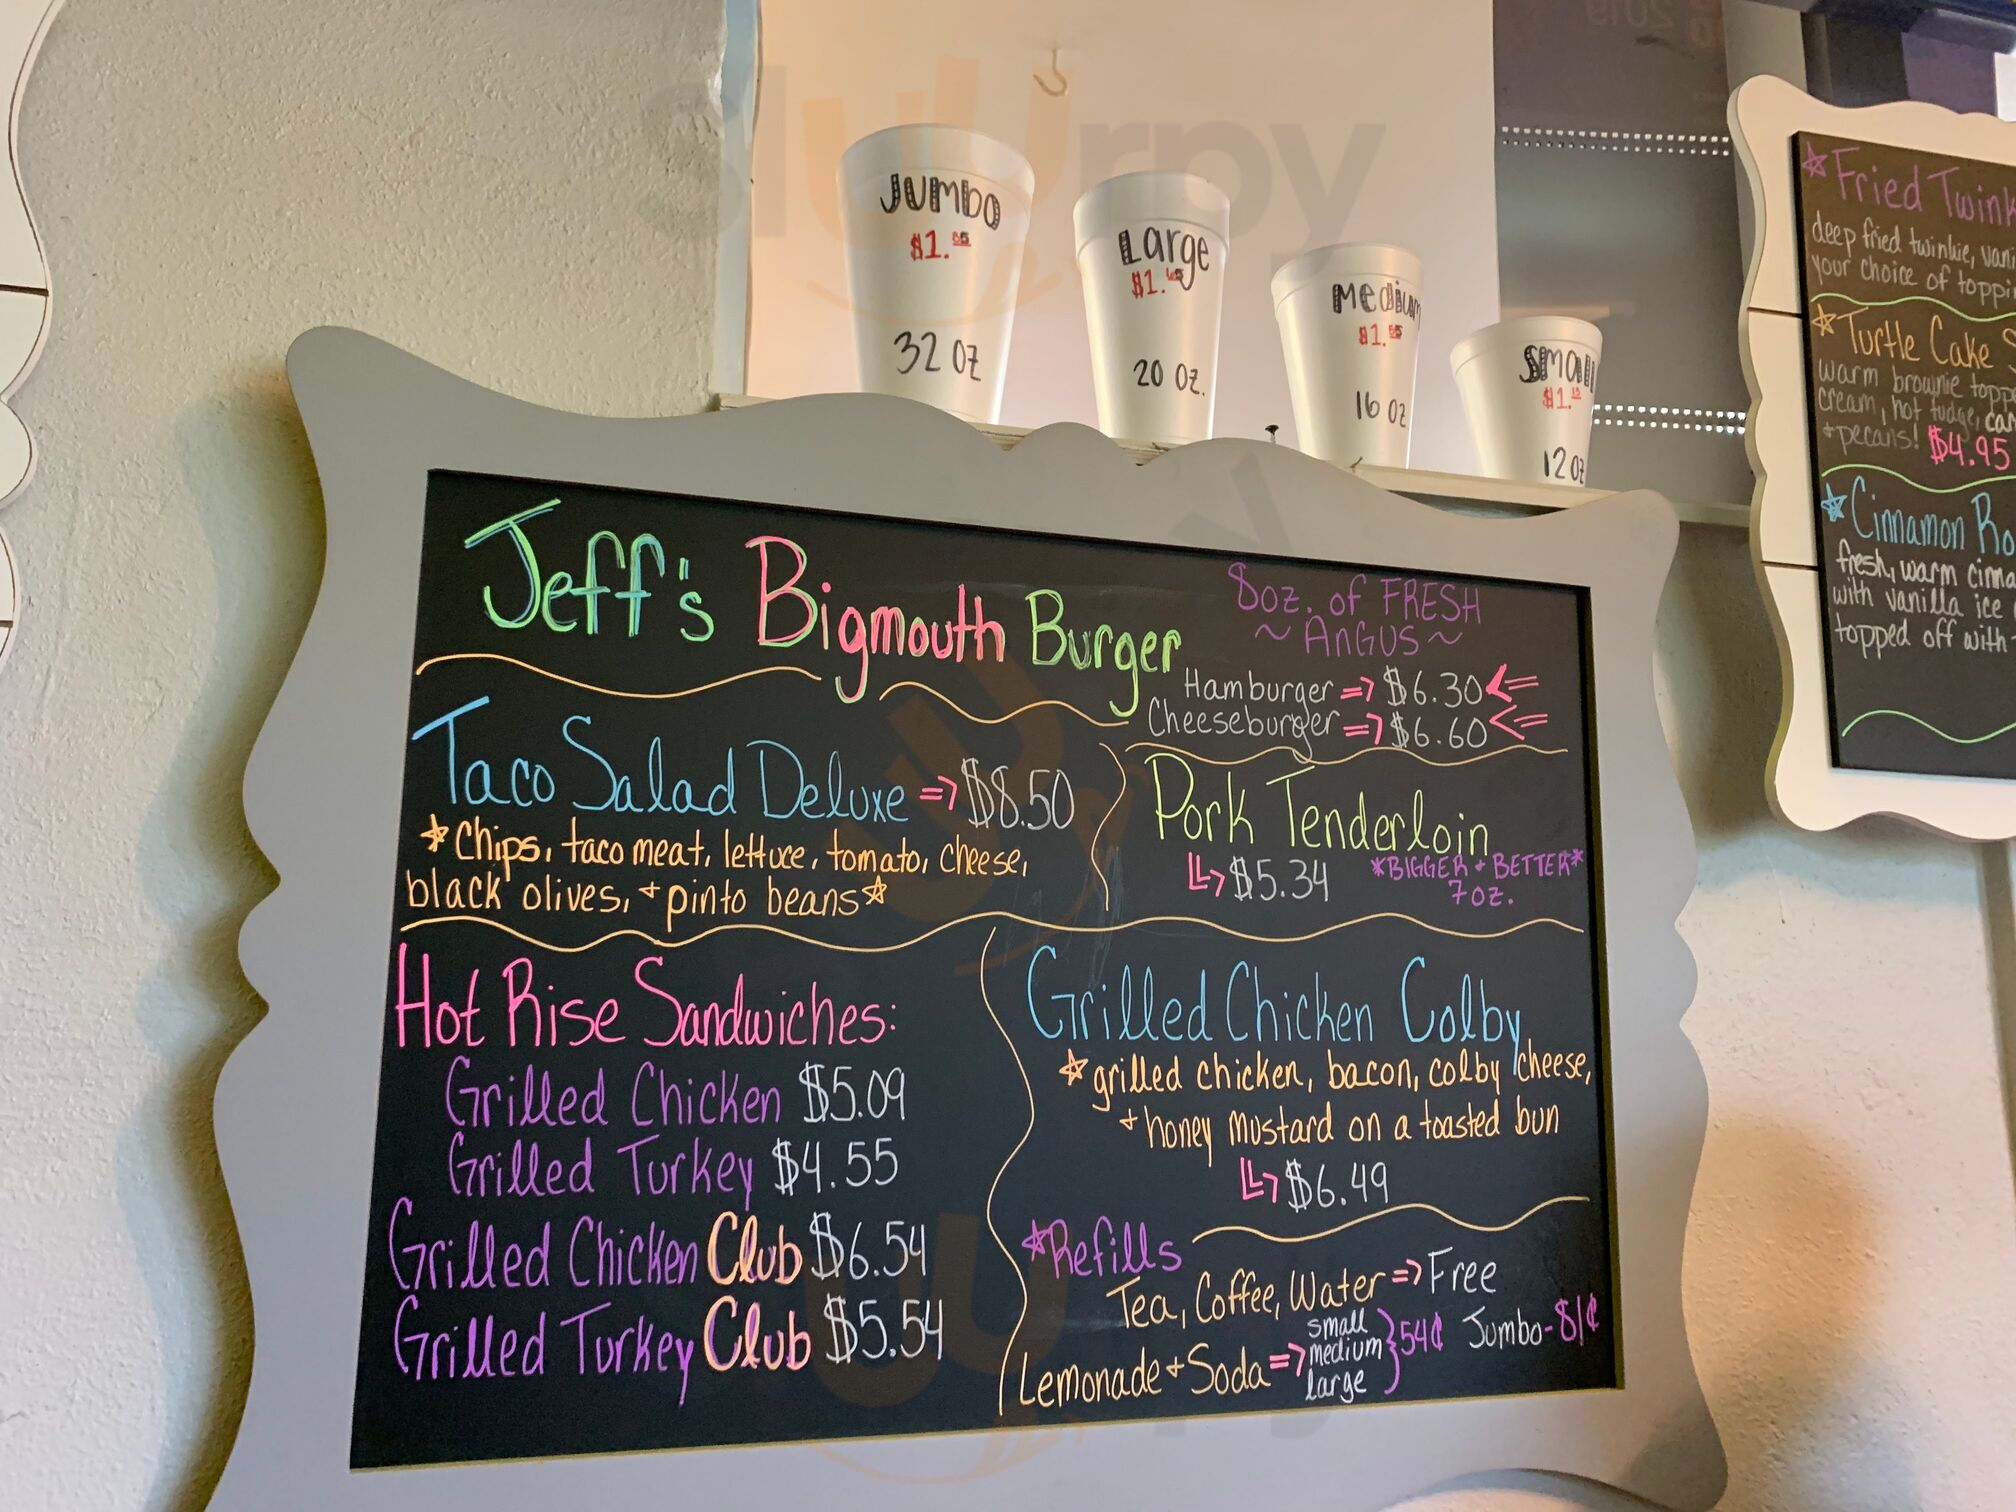 JUMBO
$1.
32 oz
Large
$1.
20 oz.
Medium
$1.
16 oz
Small
$1.
12 oz
Jeff's Bigmouth Burger
8oz. of FRESH
~ ANGUS ~
Hamburger => $6.30 <=
Cheeseburger => $6.60 <=
Taco Salad Deluxe => $8.50
*Chips, taco meat, lettuce, tomato, cheese,
black olives, + pinto beans*
Pork Tenderloin
$5.34
*BIGGER + BETTER*
7oz.
Hot Rise Sandwiches:
Grilled Chicken $5.09
Grilled Turkey $4.55
Grilled Chicken Club $6.54
Grilled Turkey Club $5.54
Grilled Chicken Colby
*grilled chicken, bacon, colby cheese,
+ honey mustard on a toasted bun
$6.49
*Refills
Tea, Coffee, Water => Free
Lemonade + Soda => small
medium
large } 54¢ Jumbo - 81¢
*Fried Twink
deep fried twinkie, vani
your choice of toppin
*Turtle Cake S
warm brownie topp
cream, hot fudge, car
+ pecans! $4.95
*Cinnamon Ro
fresh, warm cinna
with vanilla ice
topped off with
2019
slurpy